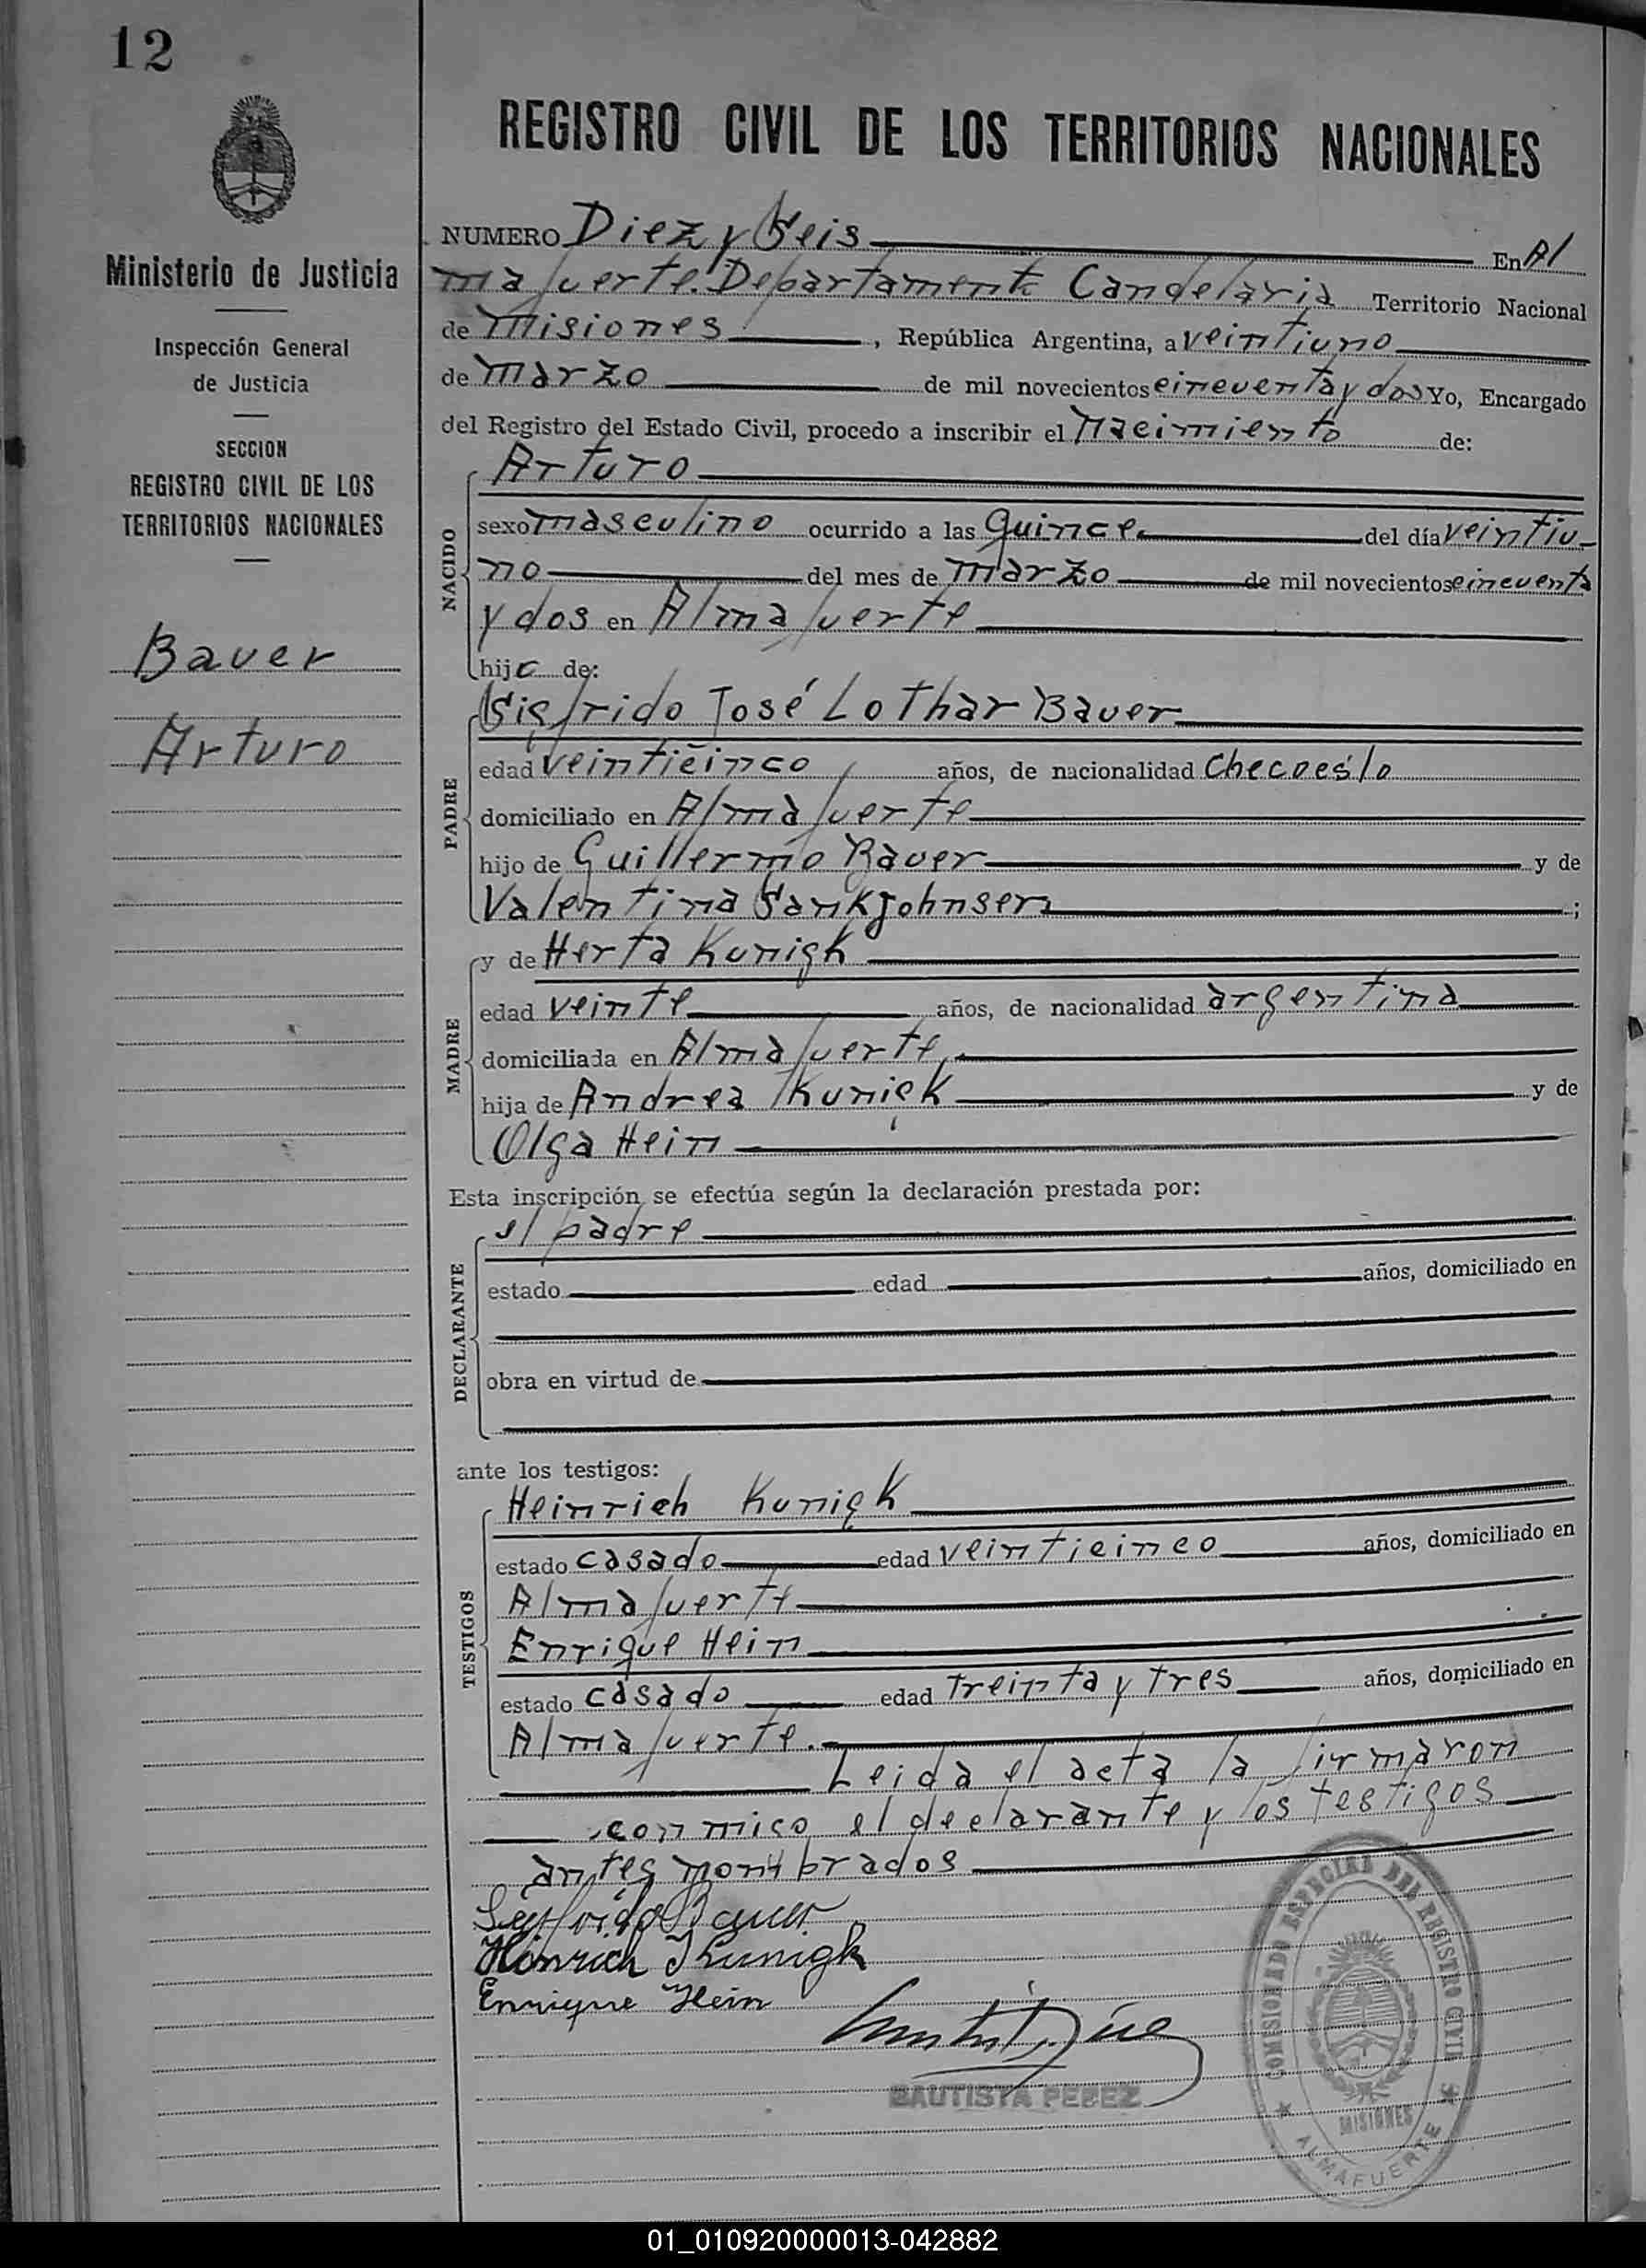 12
REGISTRO CIVIL DE LOS TERRITORIOS NACIONALES
Ministerio de Justicia
Inspección General
de Justicia
SECCION
REGISTRO CIVIL DE LOS
TERRITORIOS NACIONALES
Bauer
Arturo
NUMERO Diez y Seis En Al
mafuerte. Departamento Candelaria Territorio Nacional
de Misiones, República Argentina, a veintiuno
de marzo de mil novecientos cincuenta y dos Yo, Encargado
del Registro del Estado Civil, procedo a inscribir el Nacimiento de:
NACIDO
Arturo
sexo masculino ocurrido a las Quince del día veintiu-
no del mes de marzo de mil novecientos cincuenta
y dos en Almafuerte
hijo de:
PADRE
Sigfrido José Lothar Bauer
edad veinticinco años, de nacionalidad checoeslo
domiciliado en Almafuerte
hijo de Guillermo Bauer y de
Valentina Sankjohnsen;
MADRE
y de Herta Kunigk
edad veinte años, de nacionalidad argentina
domiciliada en Almafuerte.
hija de Andrea Kunigk y de
Olga Hein
Esta inscripción se efectúa según la declaración prestada por:
DECLARANTE
el padre
estado edad años, domiciliado en
obra en virtud de
ante los testigos:
TESTIGOS
Heinrich Kunigk
estado casado edad veinticinco años, domiciliado en
Almafuerte
Enrique Hein
estado casado edad treinta y tres años, domiciliado en
Almafuerte.
Leida el acta la firmaron
conmigo el declarante y los testigos
antes nombrados
Sigfrido Bauer
Hinrich Kunigk
Enrique Hein
BAUTISTA PEREZ
COMISIONADO ESPECIAL DEL REGISTRO CIVIL
MISIONES
ALMAFUERTE
01_010920000013-042882